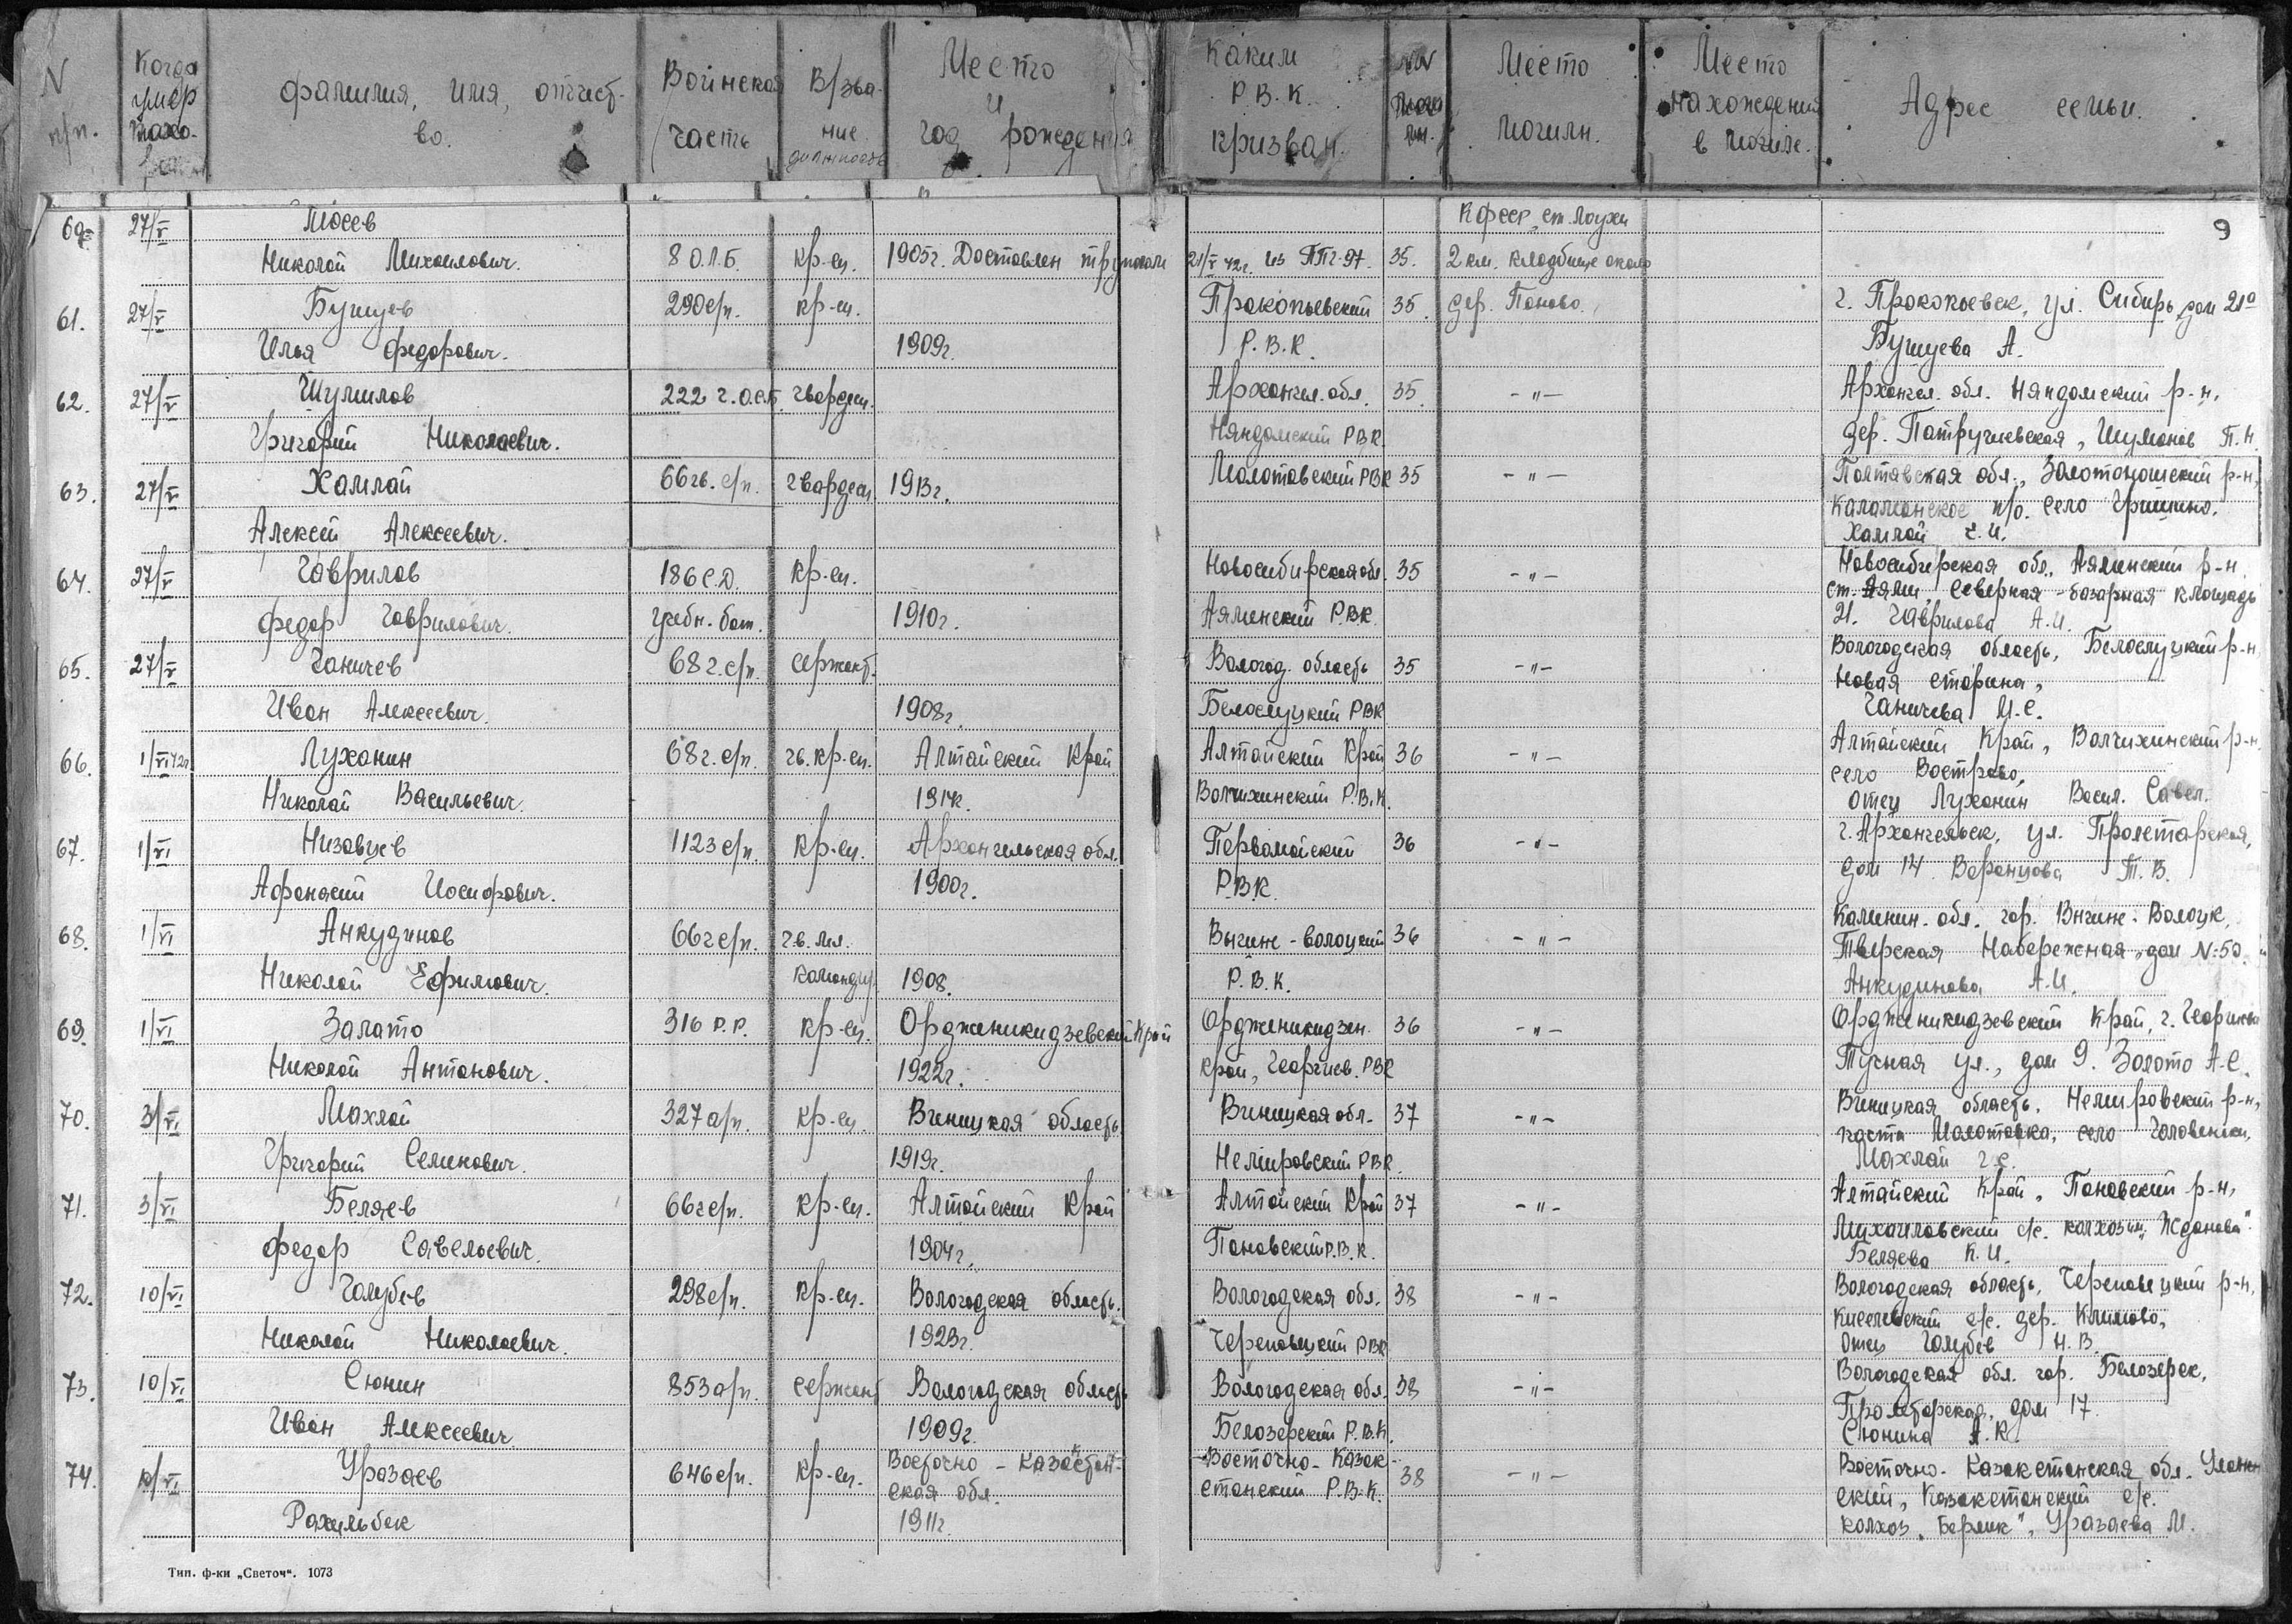 N п/п. | Когда умер | фамилия, имя, отчество. | Воинская часть | В/звание должность | Место и год рождения | Каким Р.В.К. призван. | Место могилы. | Место нахождения в могиле. | Адрес семьи.
9
60. | 27/V | Мосев | Кфсср, ст. Лоухи
Николай Михайлович. | 8 О.Л.Б. | кр-ец. | 1905г. Доставлен трупом | 21/V 42г. из ППГ-97. | 35. | 2 км. кладбище около
61. | 27/V | Бушуев | 290с/п. | кр-ец. | Прокопьевский | 35. | дер. Попово. | г. Прокопьевск, ул. Сибирь, дом 21
Илья Федорович. | 1909г. | Р.В.К. | Бушуева А.
62. | 27/V | Шумилов | 222 г.О.С.Б. | гвардеец. | Архангел. обл. | 35. | -"- | Архангел. обл. Няндомский р-н,
Григорий Николаевич. | Няндомский РВК. | дер. Патручиевская, Шуманов П.Н.
63. | 27/V | Хамлай | 66 гв. с/п. | гвардеец | 1913г. | Молотовский РВК | 35 | -"- | Полтавская обл., Золотоношский р-н,
Алексей Алексеевич. | п/о. село Гришино.
Хамлай Е.И.
64. | 27/V | Гаврилов | 186 С.Д. | кр-ец. | Новосибирская обл. | 35 | -"- | Новосибирская обл., Аяшинский р-н.
Федор Гаврилович. | учебн. бат. | 1910г. | Аяшинский Р.В.К. | ст. Аяш, Северная - базарная площадь
21. Гаврилова А.И.
65. | 27/V | Ганичев | 68 г. с/п. | сержант. | Вологод. область | 35 | -"- | Вологодская область, Белослуцкий р-н,
Новая старина,
Иван Алексеевич. | 1908г. | Белослуцкий РВК | Ганичева М.С.
66. | 1/VI 42г | Луханин | 68 г. с/п. | гв. кр-ец. | Алтайский Край | Алтайский Край | 36 | -"- | Алтайский Край, Волчихинский р-н.
село Вострово,
Николай Васильевич. | 1914г. | Волчихинский Р.В.К. | отец Луханин Васил. Савел.
67. | 1/VI | Низовцев | 1123 с/п. | кр-ец. | Архангельская обл. | Первомайский | 36 | -"- | г. Архангельск, ул. Пролетарская,
Афанасий Иосифович. | 1900г. | Р.В.К. | дом 14. Воронцова Т.В.
68. | 1/VI | Анкудинов | 66 г с/п. | гв. мл. | Вышне-волоцкий | 36 | -"- | Калинин. обл. гор. Вышне-Волоцк,
Тверская Набережная, дом N: 50.
Николай Ефимович. | командир. | 1908. | Р.В.К. | Анкудинова А.И.
69. | 1/VI | Залато | 316 Р.Р. | кр-ец. | Орджоникидзевский Край | Орджоникидзев. | 36 | -"- | Орджоникидзевский Край, г.
Николай Антонович. | 1922г. | Край, Георгиев. РВК | ул., дом 9. Золото А.С.
70. | 3/VI | Махлай | 327 а/п. | кр-ец. | Виницкая область | Виницкая обл. | 37 | -"- | Виницкая область, Немировский р-н,
почта Молотовка, село
Григорий Семенович. | 1919г. | Немировский РВК. | Махлай г.с.
71. | 3/VI | Беляев | 66 г с/п. | кр-ец. | Алтайский Край | Алтайский Край | 37 | -"- | Алтайский Край, Пановский р-н,
Михайловский с/с. колхоз им. Жданова".
Федор Савельевич. | 1904г. | Пановский Р.В.К. | Беляева К.И.
72. | 10/VI | Голубев | 298 с/п. | кр-ец. | Вологодская область. | Вологодская обл. | 38 | -"- | Вологодская область, Череповецкий р-н,
Киселевский с/с. дер. Климово,
Николай Николаевич. | 1923г. | Череповецкий РВК | Отец Голубев Н.В.
73. | 10/VI | Сюнин | 853 а/п. | сержант | Вологодская область | Вологодская обл. | 38 | -"- | Вологодская обл. гор. Белозерск,
Пролетарская, дом 17.
Иван Алексеевич. | 1909г. | Белозерский Р.В.К. | Сюнина А.К.
74. | 10/VI | Уразаев | 646 с/п. | кр-ец. | Восточно - Казахстан- | Восточно-Казах- | 38 | -"- | Восточно-Казахстанская обл.
ская обл. | станский Р.В.К. | ский, Казахстанский с/с.
Рахильбек | 1911г. | колхоз "Берлик", Уразаева М.
Тип. ф-ки „Светоч". 1073